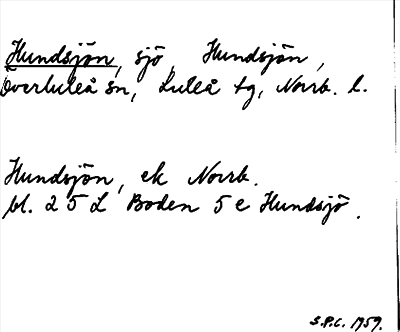 Hundsjön, sjö, Hundsjön,
Överluleå sn, Luleå tg, Norrb. l.
Hundsjön, ek Norrb.
bl. 25 L Boden 5 e Hundsjö.
S.P.C. 1959.